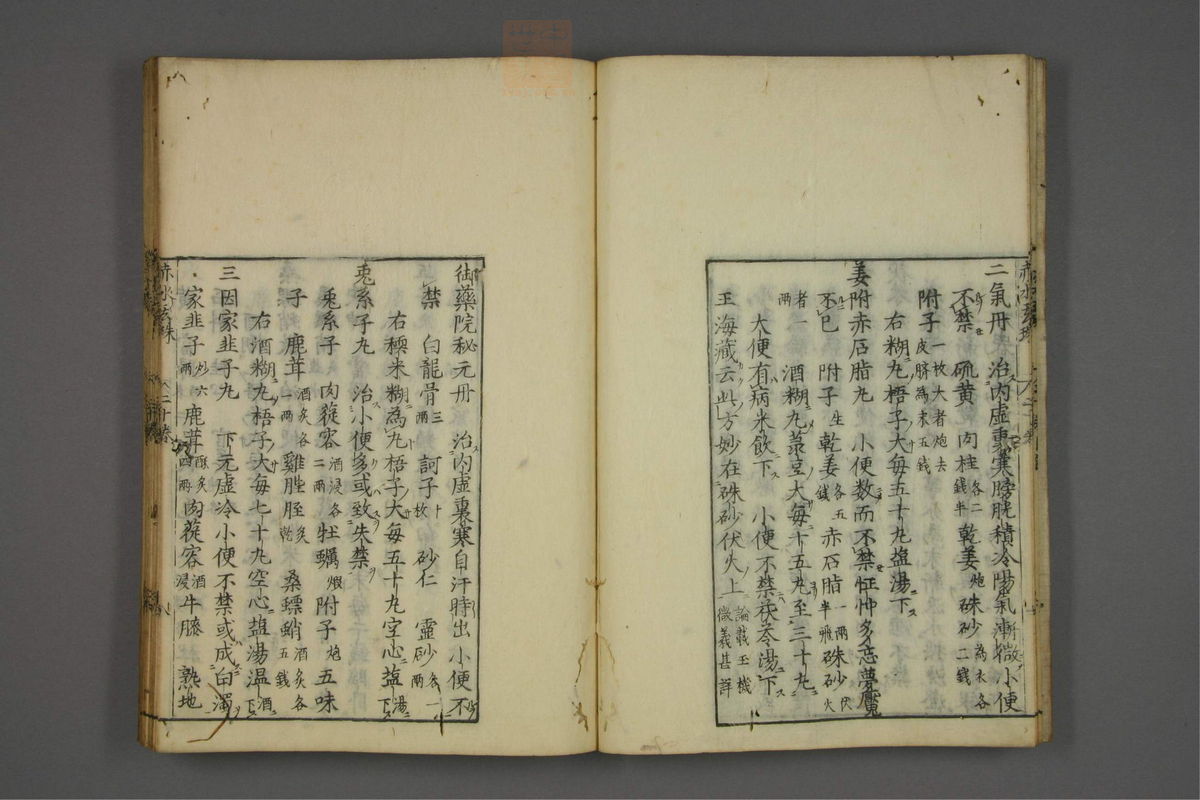 二氣丹 治內虛裏寒膀胱積冷陽氣漸微小便
不禁 硫黃 肉桂各二錢半 乾姜炮 硃砂為末各二錢
附子一枚大者炮去皮臍為末五錢
右糊丸梧子大每五十丸塩湯下
姜附赤石脂丸 小便数而不禁怔忡多忘夢魘
不已 附子生 乾姜各五錢 赤石脂一兩半飛 硃砂伏火
者一兩 酒糊丸菉豆大每十五丸至三十丸
大便有病米飲下 小便不禁茯苓湯下
王海藏云此方妙在硃砂伏火上論載玉機微義甚詳
御藥院秘元丹 治內虛裏寒自汗時出小便不
禁 白龍骨三兩 訶子十枚 砂仁 靈砂各一兩
右糯米糊為丸梧子大每五十丸空心塩湯下
兎系子丸 治小便多或致失禁
兎系子 肉蓯容酒浸各二兩 牡蠣煅 附子炮 五味
子 鹿茸酒炙各一兩 雞胜胵炙乾 桑螵蛸酒炙各五錢
右酒糊丸梧子大每七十丸空心塩湯温酒下
三因家韭子丸 下元虛冷小便不禁或成白濁
家韭子炒六兩 鹿茸酥炙四兩 肉蓯容酒浸 牛膝 熟地
赤水玄珠 二十卷